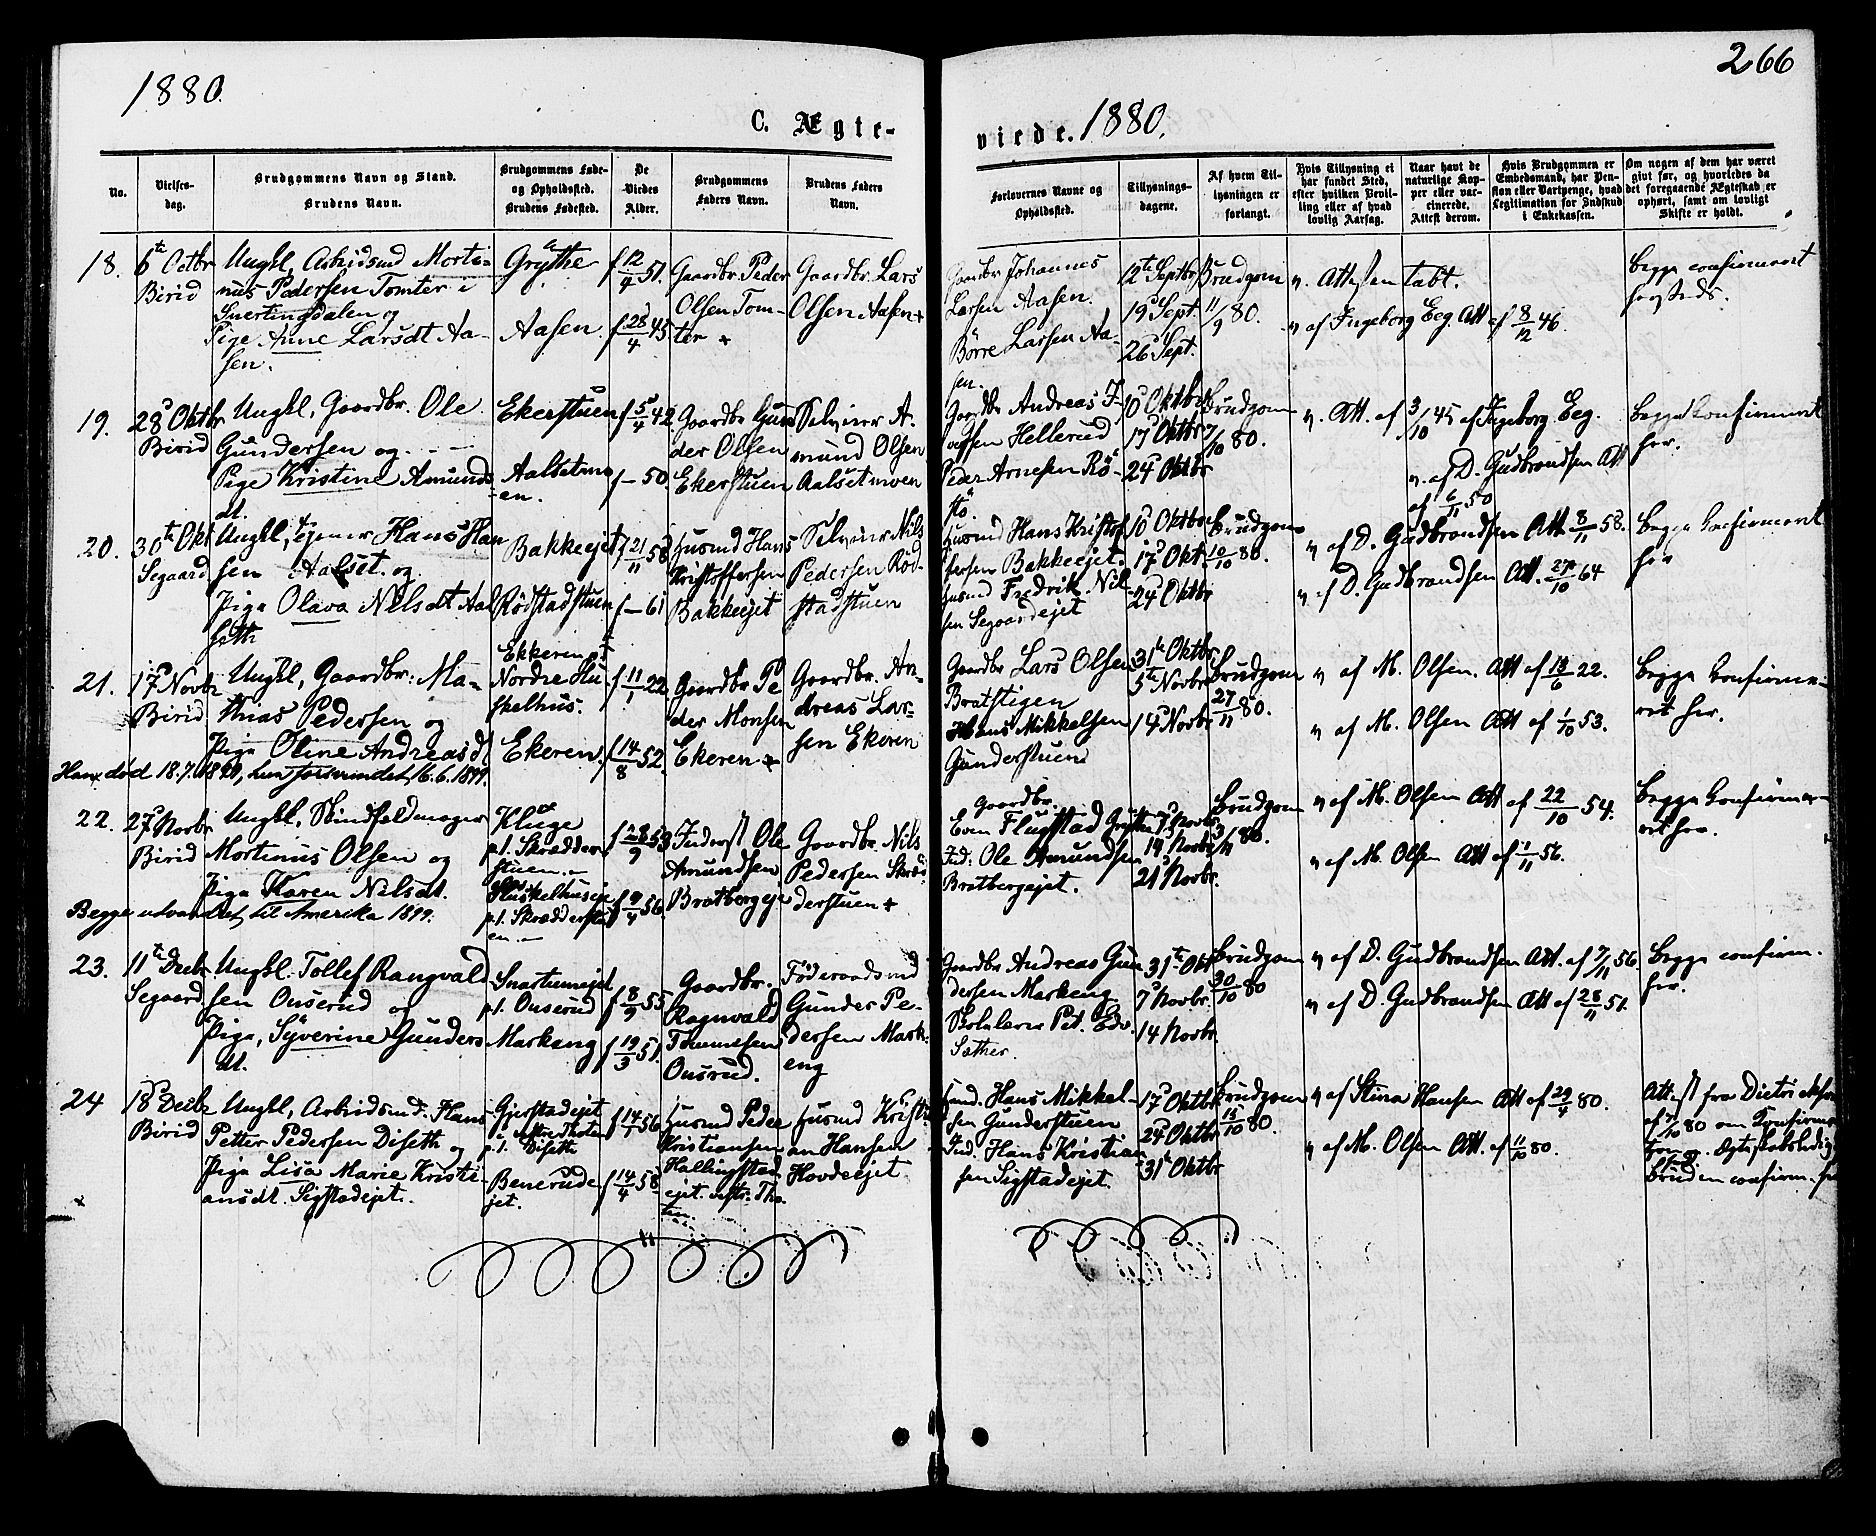 1880.
C. Ægte-
No.
Vielses-
dag.
Brudgommens Navn og Stand.
Brudens Navn.
Brudgommens Føde-
og Opholdssted.
Brudens Fødested.
De
Viedes
Alder.
Brudgommens
Faders Navn.
Brudens Faders
Navn.
18.
6te Octbr
Birid
Ungkl, Arbidsmd Morti-
nus Pedersen Tomter i
Snertingdalen og
Pige Anne Larsdt Aa-
sen.
Grythe
Aasen
f 12/4 51.
f 28/4 45
Gaardbr. Peder
Olsen Tom-
ter +
Gaardbr. Lars
Olsen Aasen +
19.
28 Oktbr
Birid
Ungkl, Gaardbr. Ole
Gundersen og
Pige Kristine Amunds
dt.
Ekerstuen
Aalsetmo
en.
f 5/4 42
f — 50.
Gaardbr Gun
der Olsen
Ekerstuen
Selveier A-
mund Olsen
Aalsetmoen
20.
30te Okt
Segaard
Ungkl, Hans Han
sen Aalset og
Pige Olava Nilsdt Aal
seth
Bakkeejet
Rødstadstuen
f 21/11 58
f — 61
Husmd Hans
Kristoffersen
Bakkeejet
Selveier Nils
Pedersen Rød-
stadstuen
21.
17 Novbr
Birid
Ungkl, Gaardbr. Ma-
thias Pedersen og
Pige Oline Andreasdt
Ekkeren pt
Nordre Slu
skelhus.
Ekeren.
f 11/1 22
f 14/8 52.
Gaardbr Pe
der Monsen
Ekeren +
Gaardbr. An-
dreas Lar-
sen Ekeren
22.
27 Novbr
Birid
Ungkl, Skindfeldmager
Mortinus Olsen og
Pige Karen Nilsdt.
Begge udvandret til Amerika 1899.
Kluge
p.t. Skrædder-
stuen.—
Sluskelhuseje
p.t. Skrædderstu
en.—
f 28/9 53
f 9/4 56.
Inderst Ole
Amundsen
Bratbergeje
Gaardbr. Nils
Pedersen Skræd
derstuen +
23.
11te Decbr
Segaard
Ungkl. Tollef Rangvald
sen Onserud og
Pige, Syverine Gunders
dt.
Snartumejet
p.t. Onserud
Markeng
f 8/9 55
f 19/3 51.
Gaardbr.
Ragnvald
Tommesen
Onsrud.
Føderaadsmd
Gunder Pe-
dersen Mark-
eng
24
18 Decbr
Birid
Ungkl, Arbeidsmd. Hans
Petter Pedersen Diseth og
Pige Lisa Marie Kristi-
ansdt. Sigstadejet.
Gjerstadejet
p.t. Diseth
Benerude
jet.
f 14/7 56
f 14/4 58.
Husmd Peder
Kristiansen
Hallingstad
ejet
Husmd Kristi-
an Hansen
Hovdeejet
266
viede. 1880.
Forlovernes Navne og
Opholdssted.
Tillysnings-
dagene.
Af hvem Til-
lysningen er
forlangt.
Hvis Tillysning ei
har fundet Sted,
efter hvilken Bevil-
ling eller af hvad
lovlig Aarsag.
Naar havt de
naturlige Kop-
per eller vac-
cinerede.
Attest derom.
Hvis Brudgommen er
Embedsmand, har Pen-
sion eller Vartpenge, hvad
Legitimation for Indskud
i Enkekassen.
Om nogen af dem har været
givt før, og hvorledes da
det foregaaende Ægteskab er
ophørt, samt om lovligt
Skifte er holdt.
Gaardbr Johannes
Larsen Aasen.
Börre Larsen Aa-
sen.
12te Septbr
19 Sept.
26 Sept.
Brudgom
11/9 80.
v. Attesten tabt.
v af Ingeborg Eeg Att af 8/12 46.
begge confirmeret
Gaardbr Andreas
Hellerud
Peder Arnesen Rö-
stö.
10 Oktbr
17 Oktbr
24 Oktbr
Brudgom
7/10 80.
v. Att. af 3/10 45 af Ingeborg Eeg.
v. af D. Gudbrandsen Att
af 6/11 50
begge Konfirmeret
her.
Husmd Hans Kristof
fersen Bakkeejet.
Husmd Fredrik Nil-
sen Segaardejet
10 Oktbr
17 Okt.
24 Oktbr
Brudgom
10/10 80.
v af D. Gudbrandsen Att 8/11 58.
v. af D. Gudbrandsen Att. 27/10 64
begge Konfirmeret
her
Gaardbr Lars Olsen
Bratstigen
Hans Mikkelsen
Gunderstuen
31te Oktbr
5te Novbr
14 Novbr.
Brudgom
27/11 80.
v af M. Olsen. Att af 18/6 22.
v af M. Olsen Att af 1/10 53.
begge Konfirme-
ret her.
Gaardbr.
Even Flugstad
Ind: Ole Amundsen
Bratbergejet.
7 Novbr.
14 Novbr
21 Novbr.
Brudgom
3/11 80.
v af M. Olsen Att af 22/10 54.
v af M. Olsen Att af 1/11 56.
begge Konfirme-
ret her.
Gaardbr Andreas Gun
dersen Markeng
Skolelærer Pet. Edv.
Sæther.
31te Okt
7 Novbr.
14 Novbr.
Brudgom
30/10 80
v af D. Gudbrandsen Att. af 7/11 56.
v af D. Gudbrandsen Att af 28/11 51.
begge confirm.
her.
Hans Mikkel-
sen Gunderstuen
Ind. Hans Kristian
sen Sigstadejet.
17 Oktbr
24 Oktbr
31te Oktbr
Brudgom
15/10 80.
v af Stina Hansen Att af 29/4 80.
v af M. Olsen Att. af 11/10 80.
Bruden confirm. her